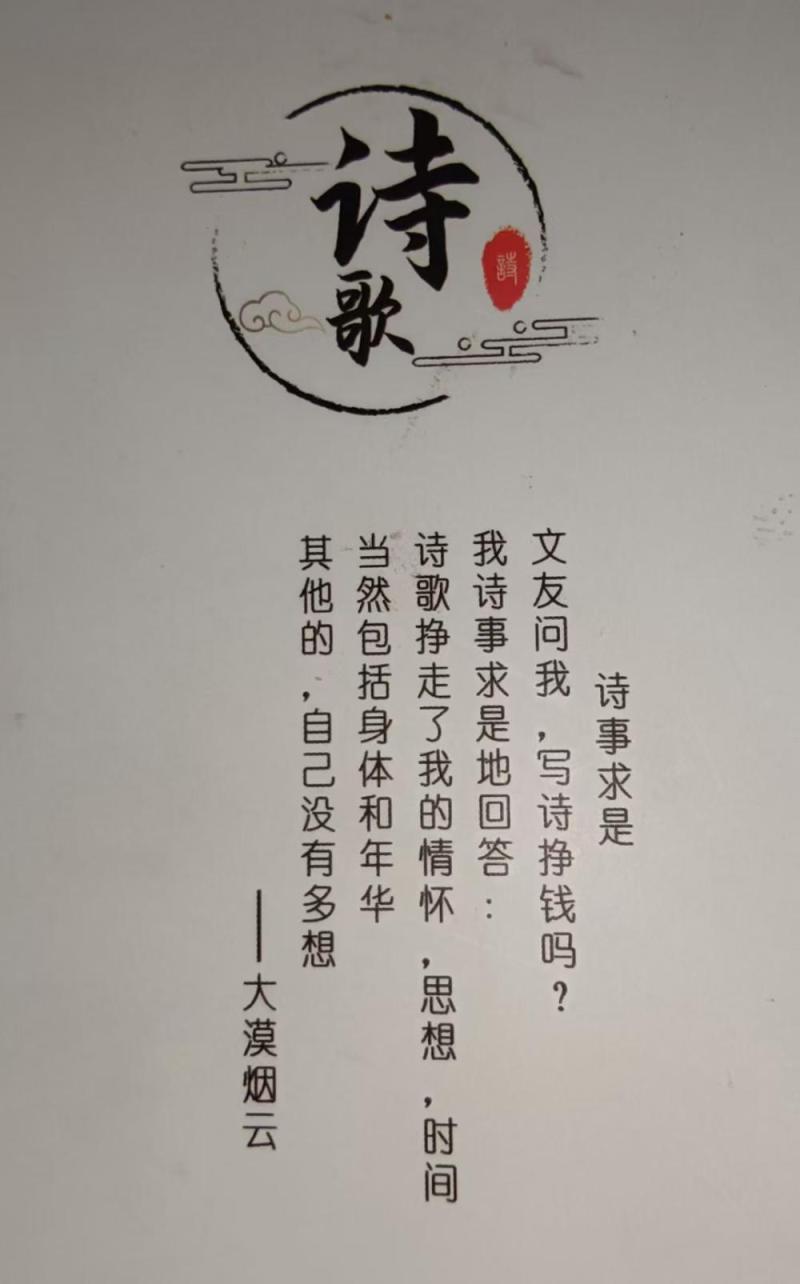 诗歌
詩
诗事求是
文友问我，写诗挣钱吗？
我诗事求是地回答：
诗歌挣走了我的情怀，思想，时间
当然包括身体和年华
其他的，自己没有多想
——大漠烟云